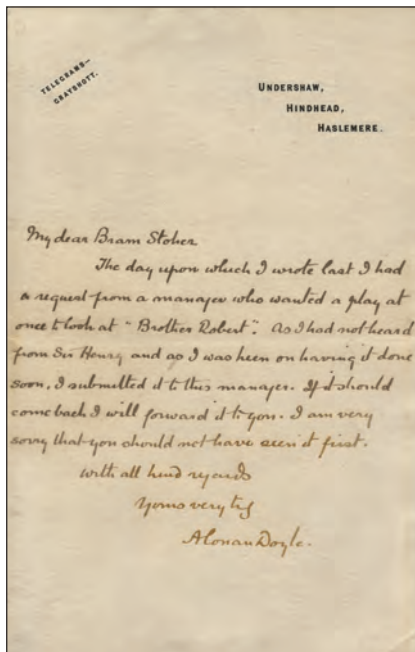 TELEGRAMS—
GRAYSHOTT.
UNDERSHAW,
HINDHEAD,
HASLEMERE.
My dear Bram Stoker
The day upon which I wrote last I had
a request from a manager who wanted a play at
once to look at "Brother Robert". As I had not heard
from Sir Henry and as I was keen on having it done
soon, I submitted it to this manager. If it should
come back I will forward it to you. I am very
sorry that you should not have seen it first.
With all kind regards
Yours very try
A Conan Doyle.